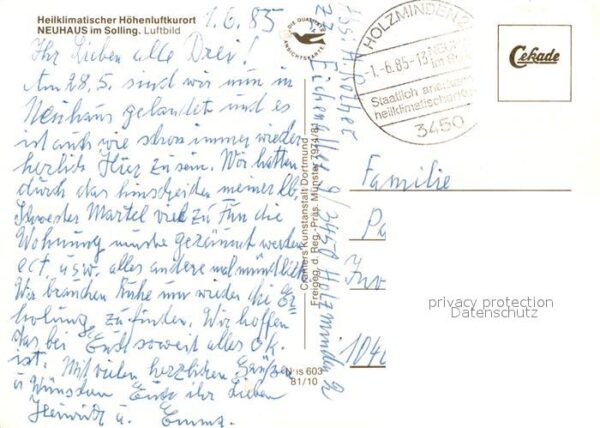 Heilklimatischer Höhenluftkurort
NEUHAUS im Solling. Luftbild
1.6.85
Ihr Lieben alle Drei!
Am 28.5. sind wir nun in
Neuhaus gelandet und es
ist auch wie schon immer wieder
herrlich Hier zu sein. Wir hatten
durch das hinscheiden meiner lb.
Schwester Martel viel zu Tun die
Wohnung musste geräumt werden
ect. usw. alles andere mal mündlich.
Wir brauchen Ruhe um wieder die Er
holung zu finden. Wir hoffen
das bei Euch soweit alles o.k.
ist. Mit vielen herzlichen Grüßen
u Wünschen Euch ihr Lieben
Heinrich u. Emma.
DIE QUALITÄTS
ANSICHTSKARTE
Eichenallee 9/3450 Holzminden 2
Cramers Kunstanstalt Dortmund
Freigeg. d. Reg.-Präs. Münster 7974/81
N is 603
81/10
HOLZMINDEN 2
-1.-6.85-13
Staatlich anerkannter
heilklimatischer
3450
Cekade
Familie
privacy protection
Datenschutz